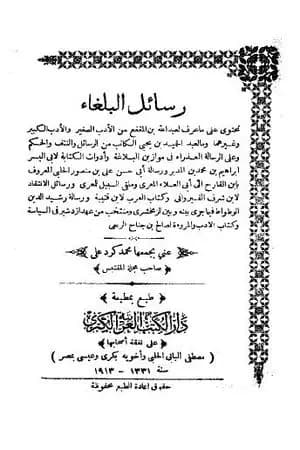 رسائل البلغاء
تحتوي على ما عرف لعبد الله بن المقفع من الأدب الصغير والأدب الكبير
وغيرهما وما لعبد الحميد بن يحيى الكاتب من الرسائل والنتف والحكم
وعلى الرسالة العذراء في موازين البلاغة وأدوات الكتابة لابي اليسر
ابراهيم بن محمد بن المدبر ورسالة أبي حسن علي بن منصور الحلبي المعروف
بابن القارح الى أبي العلاء المعري وملقى السبيل للمعري ورسائل الانتقاد
لابن شرف القيرواني وكتاب العرب لابن قتيبة ورسالة رشيد الدين
الوطواط فيما جرى بينه وبين الزمخشري ومنتخب من عهد اردشير في السياسة
وكتاب الادب والمروءة لصالح بن جناح الربعي
عني بجمعها محمد كرد علي
صاحب مجلة المقتبس
طبع بمطبعة
دار الكتب العربية الكبرى
على نفقة أصحابها
( مصطفى البابي الحلبي وأخويه بكري وعيسى بمصر )
سنة ١٣٣١ - ١٩١٣
حقوق اعادة الطبع محفوظة